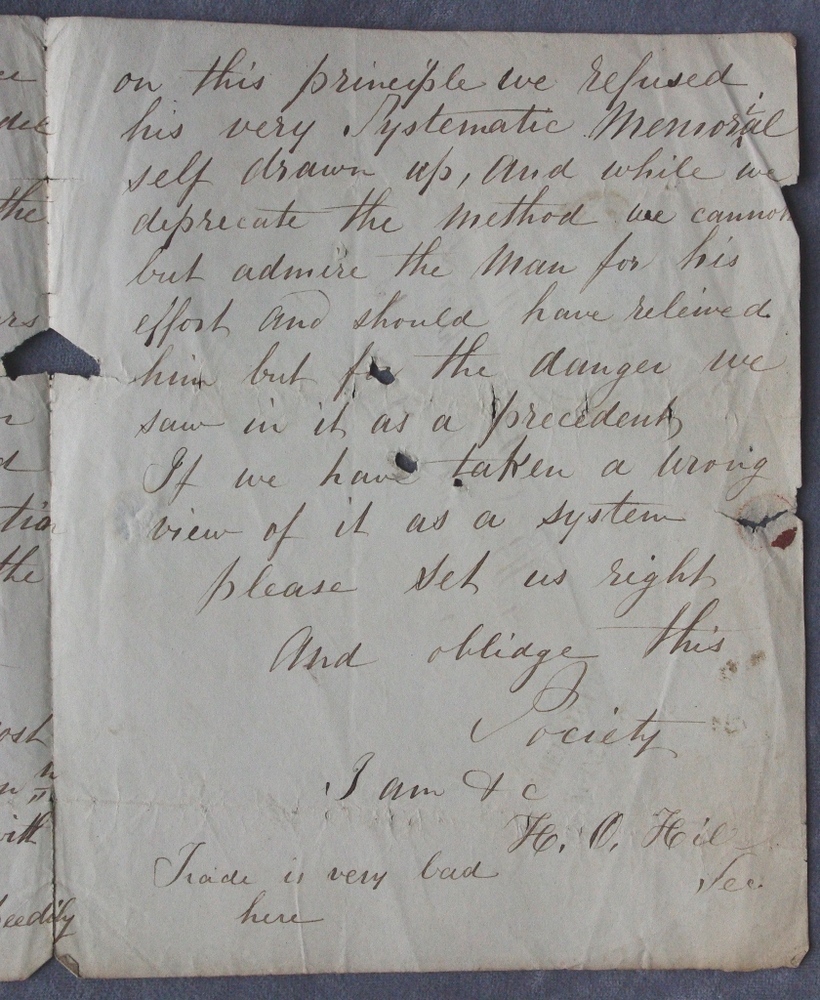 on this principle we refused
his very Systematic Memorial
self drawn up, And while we
deprecate the Method we cannot
but admire the Man for his
effort and should have releived
him but for the danger we
saw in it as a precedent
If we have taken a wrong
view of it as a system
please set us right
And oblidge this
Society
I am & c
H. O. Hil
Sec.
Trade is very bad
here
the
the
with